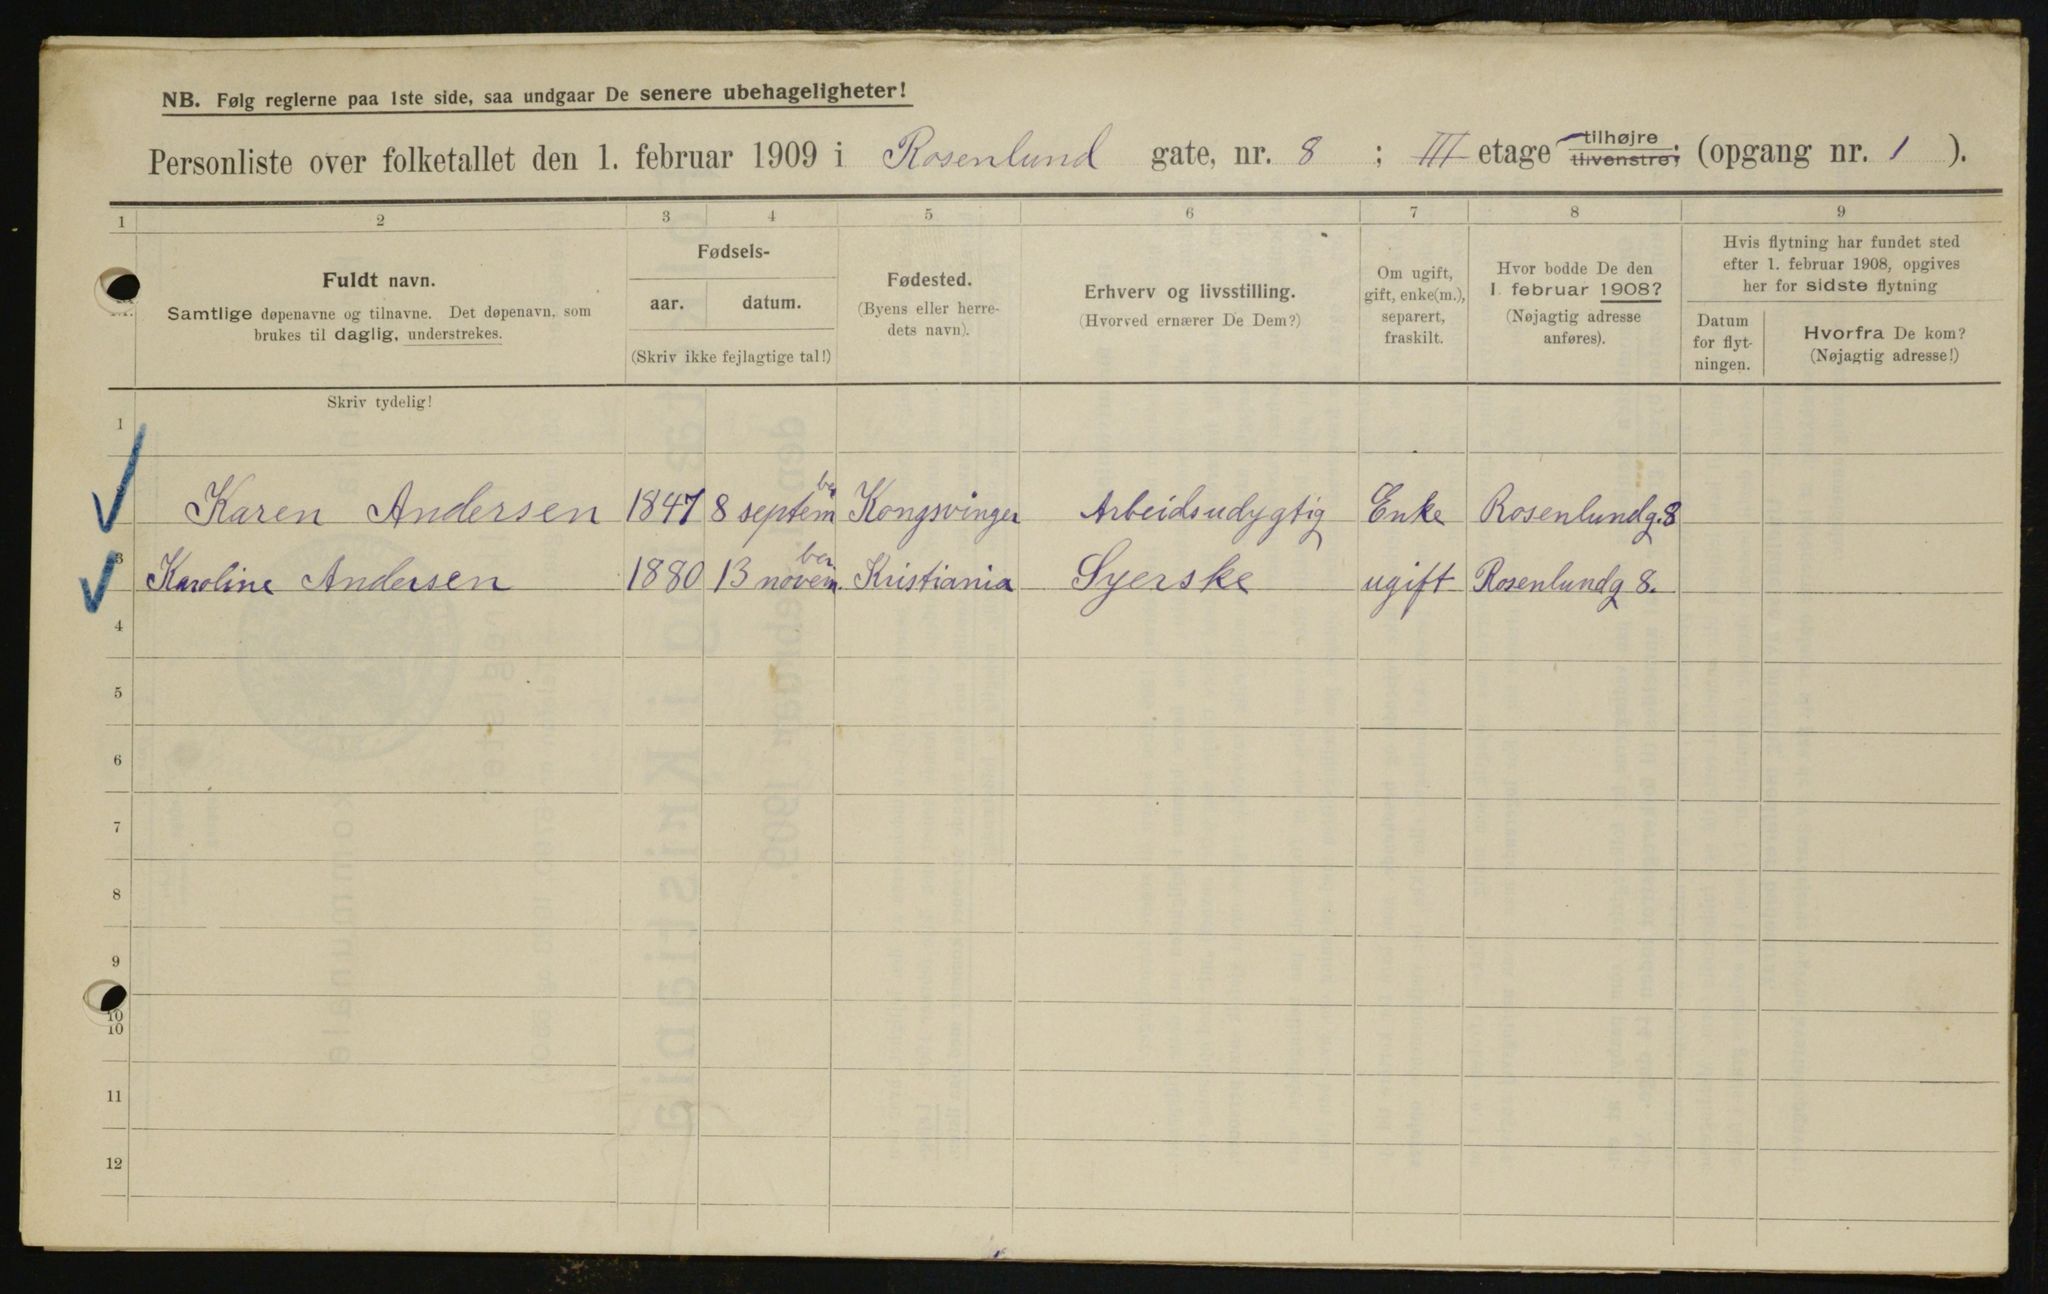 NB. Følg reglerne paa 1ste side, saa undgaar De senere ubehageligheter!
Personliste over folketallet den 1. februar 1909 i Rosenlund gate, nr. 8 ; III etage tilhøjre tilvenstre; (opgang nr. 1 ).
1 2 3 4 5 6 7 8 9
Fuldt navn.
Samtlige døpenavne og tilnavne. Det døpenavn, som
brukes til daglig, understrekes.
Fødsels-
aar. datum.
(Skriv ikke fejlagtige tal!)
Fødested.
(Byens eller herre-
dets navn).
Erhverv og livsstilling.
(Hvorved ernærer De Dem?)
Om ugift,
gift, enke(m.),
separert,
fraskilt.
Hvor bodde De den
1. februar 1908?
(Nøjagtig adresse
anføres).
Hvis flytning har fundet sted
efter 1. februar 1908, opgives
her for sidste flytning
Datum
for flyt-
ningen.
Hvorfra De kom?
(Nøjagtig adresse!)
Skriv tydelig!
1
Karen Andersen 1847 8 septembe Kongsvinger Arbeidsudygtig Enke Rosenlundg. 8
3 Karoline Andersen 1880 13 november. Kristiania Syerske ugift Rosenlundg 8.
4
5
6
7
8
9
10
10
11
12